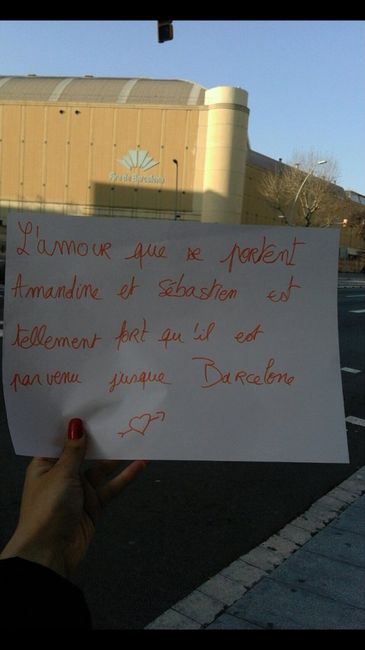 Fira de Barcelona
L'amour que se portent
Amandine et Sébastien est
tellement fort qu'il est
parvenu jusque Barcelone